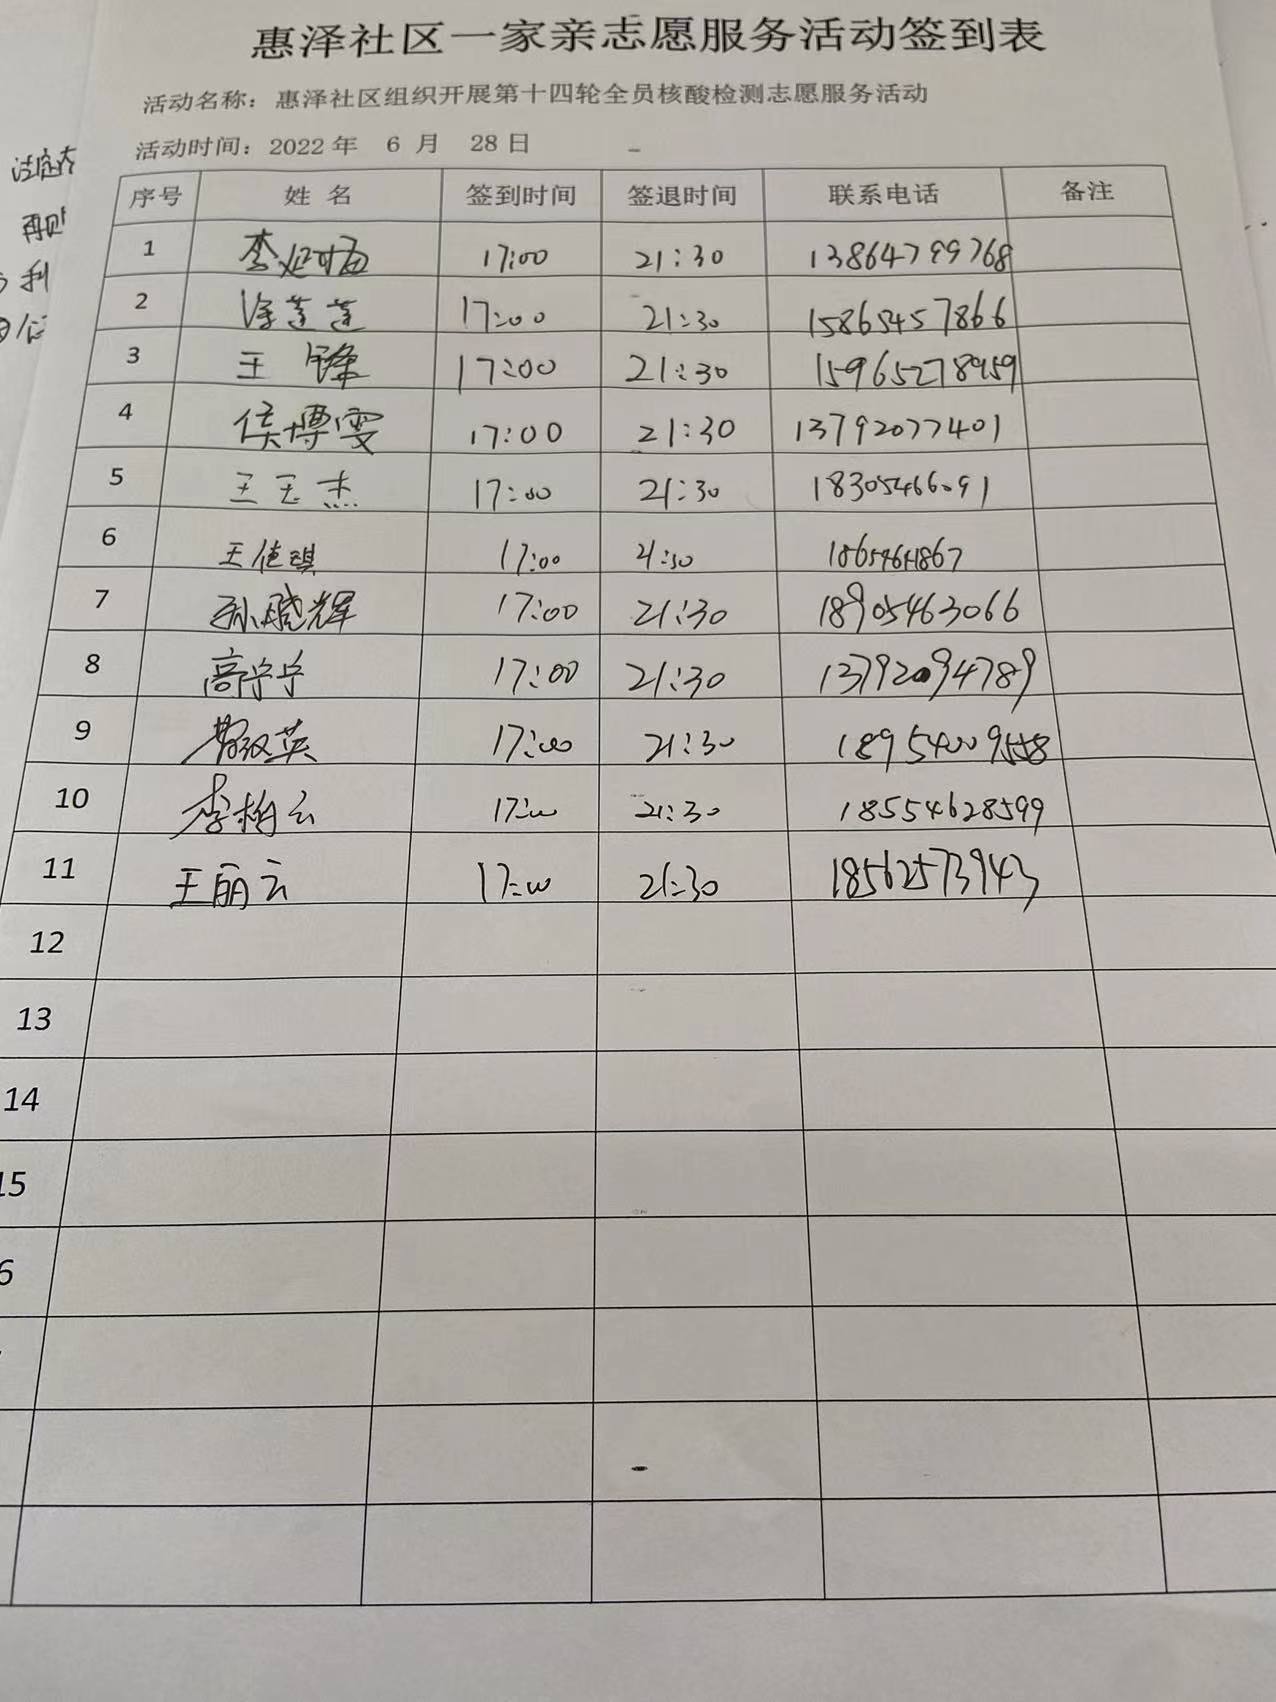 惠泽社区一家亲志愿服务活动签到表
活动名称：惠泽社区组织开展第十四轮全员核酸检测志愿服务活动
活动时间：2022 年 6 月 28 日
序号 姓 名 签到时间 签退时间 联系电话 备注
1 李 17:00 21:30 13864799768
2 徐莲莲 17:00 21:30 15865457866
3 王 锋 17:00 21:30 15965278959
4 侯博雯 17:00 21:30 13792077401
5 王玉杰 17:00 21:30 18305466091
6 王佳琪 17:00 21:30
7 孙晓辉 17:00 21:30 18905463066
8 高宁宁 17:00 21:30 13792094789
9 17:00 21:30
10 李柏云 17:00 21:30 18554628599
11 王丽云 17:00 21:30 18562573943
12
13
14
15
6